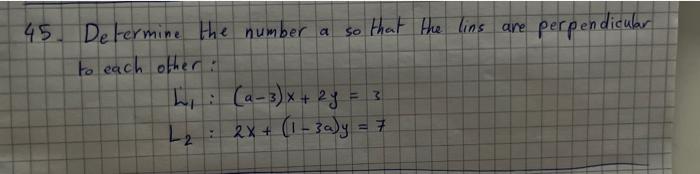 45. Determine the number a so that the lins are perpendicular
to each other :
L₁ : (a-3)x + 2y = 3
L₂ : 2x + (1-3a)y = 7